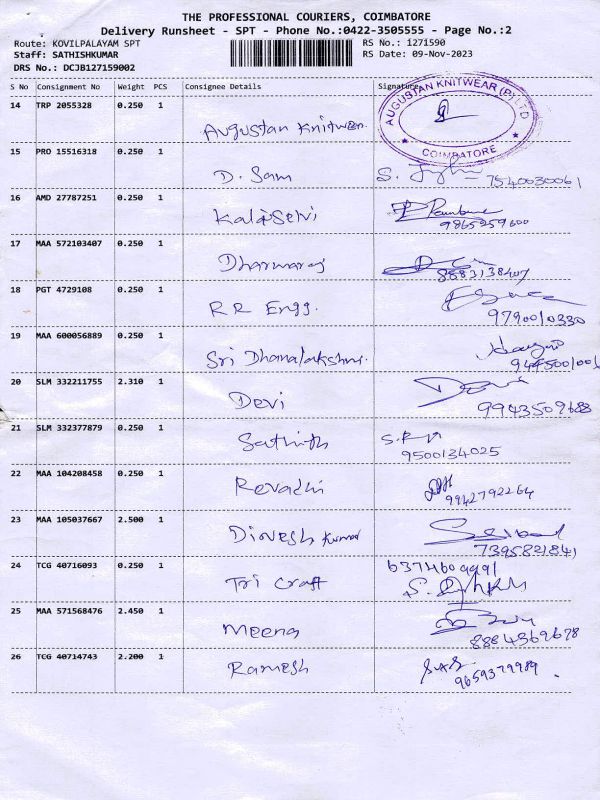 THE PROFESSIONAL COURIERS, COIMBATORE
Delivery Runsheet - SPT - Phone No.:0422-3505555 - Page No.:2
Route: KOVILPALAYAM SPT RS No.: 1271590
Staff: SATHISHKUMAR RS Date: 09-Nov-2023
DRS No.: DCJB127159002
S No Consignment No Weight PCS Consignee Details Signature
14 TRP 2055328 0.250 1
Augustan Knitwear.
AUGUSTAN KNITWEAR (P) LTD
COIMBATORE
15 PRO 15516318 0.250 1
D. Sam 7540030061
16 AMD 27787251 0.250 1
Kalaiselvi 9865259600
17 MAA 572103407 0.250 1
Dharmaraj 8883138407
18 PGT 4729108 0.250 1
RR Engg. 9790010330
19 MAA 600056889 0.250 1
Sri Dhanalakshmi. 9445001001
20 SLM 332211755 2.310 1
Devi 9943509688
21 SLM 332377879 0.250 1
Sathish 9500134025
22 MAA 104208458 0.250 1
Revathi 9942792264
23 MAA 105037667 2.500 1
Dinesh Kumar 7395821841
24 TCG 40716093 0.250 1
Tri Craft 6374609991
25 MAA 571568476 2.450 1
Meena 8884369678
26 TCG 40714743 2.200 1
Ramesh 9659379989